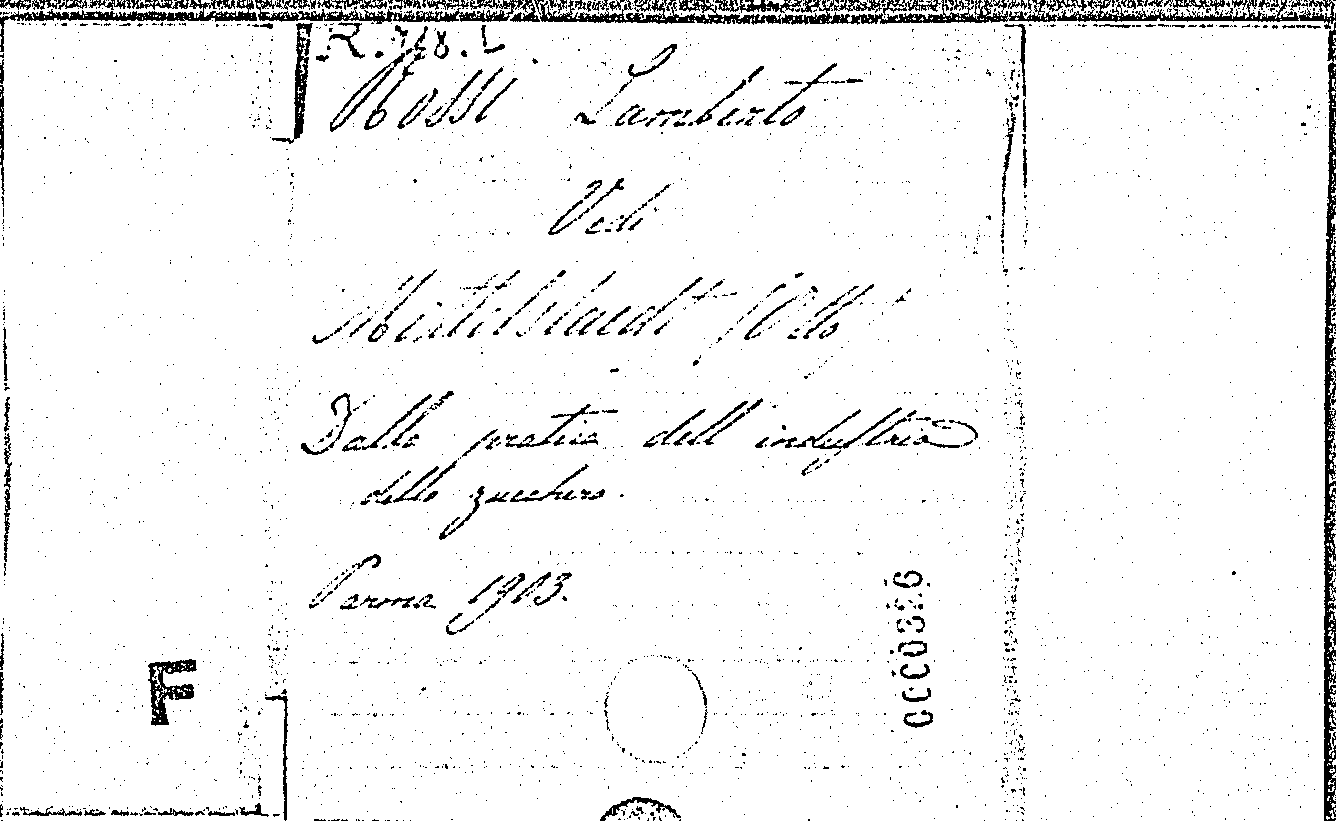 R.718.L
Rossi Lamberto
Vedi
Mittelstaedt (Otto)
Dalla pratica dell'industria
dello zucchero.
Parma 1903.
0000326
F